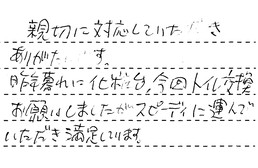 親切に対応していただき
ありがた　す。
昨年暮れに化粧台、今回トイレ交換
お願いしましたがスピーディに運んで
いただき満足しています